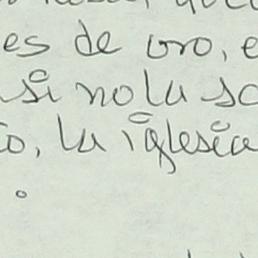 es de oro, e
si no la so
o, la iglesia
.